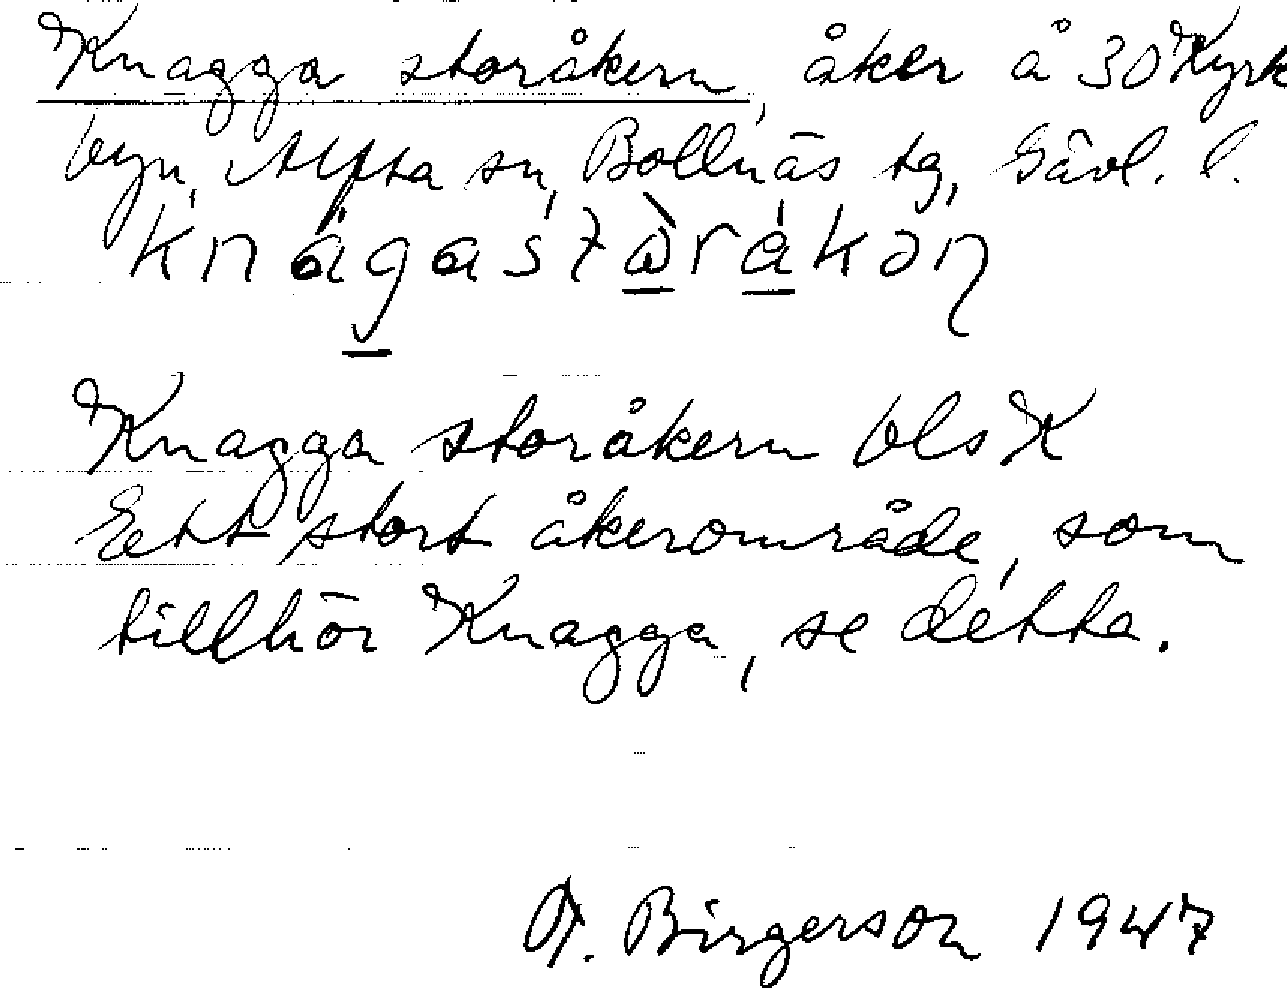 Knagga storåkern, åker å 30 Kyrk
byn, Alfta sn, Bollnäs tg, Gävl. l.
Knagga storåkern bls K
Ett stort åkerområde, som
tillhör Knagga, se detta.
Birgerson 1947